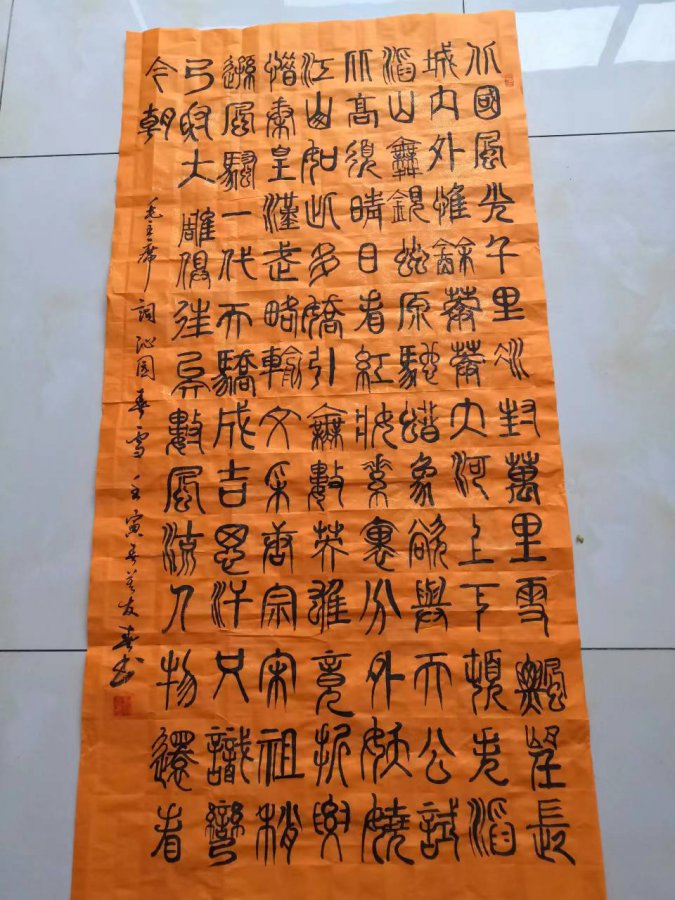 北國風光千里冰封萬里雪飄望長
城內外惟餘莽莽大河上下頓失滔
滔山舞銀蛇原馳蜡象欲與天公試
比高須晴日看紅妝素裹分外妖嬈
江山如此多嬌引無數英雄競折腰
惜秦皇漢武略輸文采唐宗宋祖稍
遜風騷一代天驕成吉思汗只識彎
弓射大雕俱往矣數風流人物還看
今朝
毛主席詞沁园春雪壬寅友春书